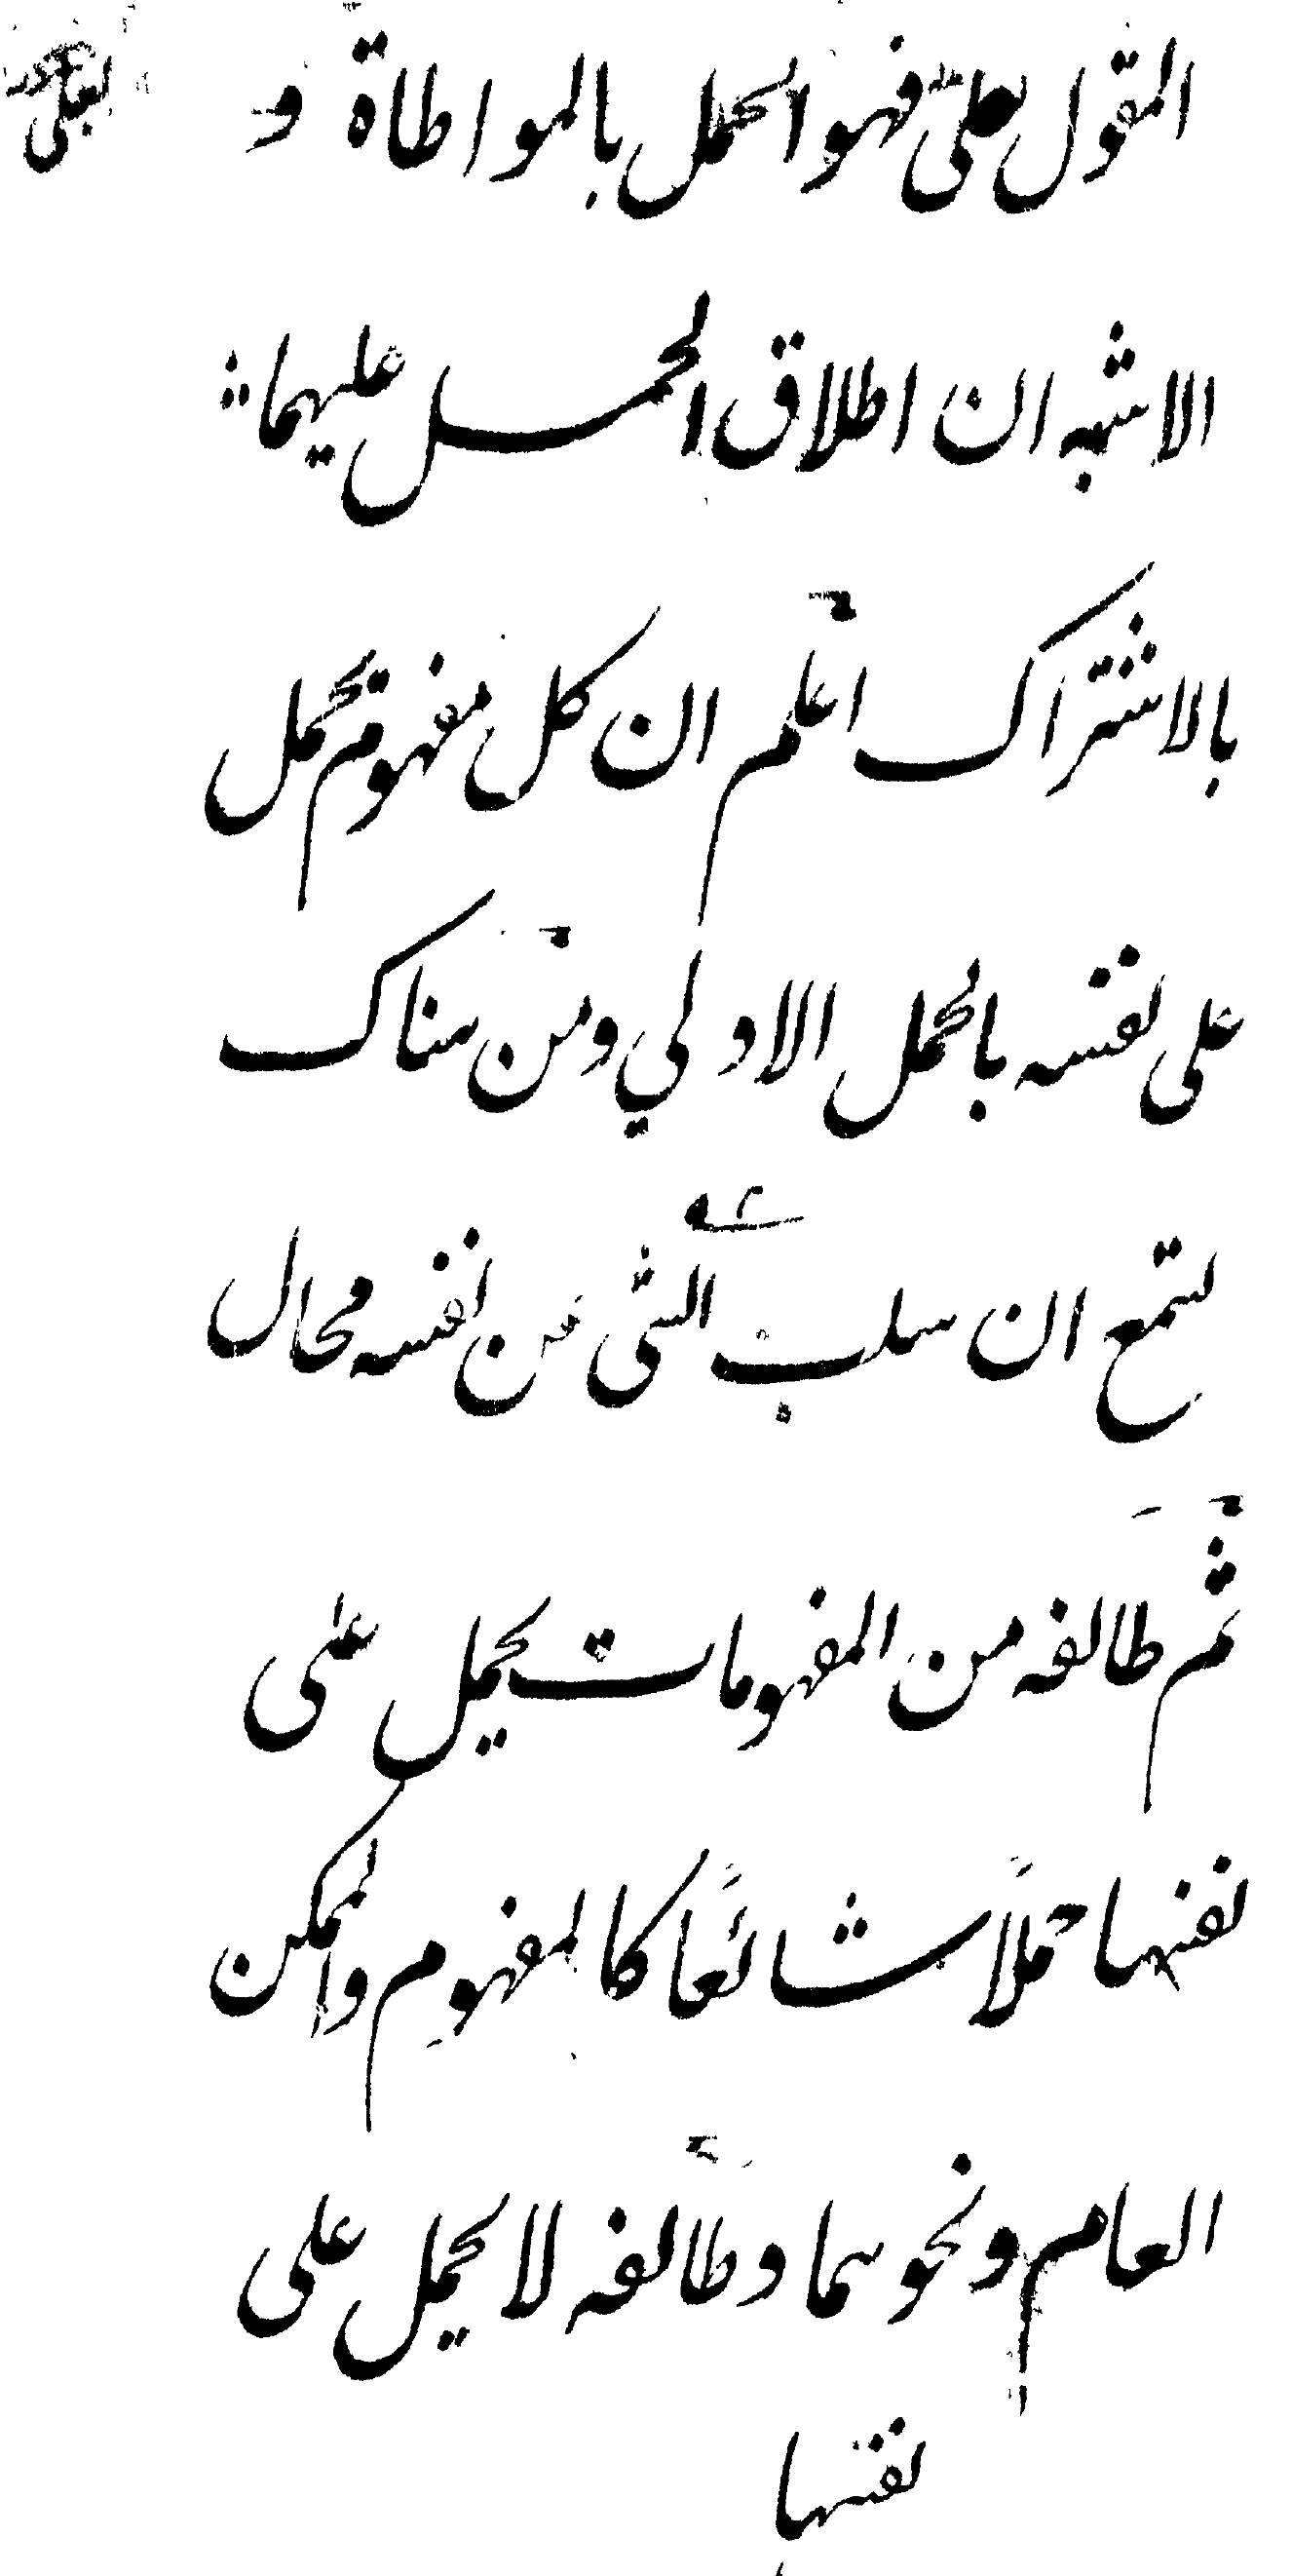 المقول بعلى فهو الحمل بالمواطاة و
الاشبه ان اطلاق الحمل عليهما
بالاشتراك اعلم ان كل مفهوم يحمل
على نفسه بالحمل الاولي ومن هناك
تسمع ان سلب الشئ عن نفسه محال
ثم طائفه من المفهومات يحمل على
نفسها حملاً شائعًا كالمفهوم والممكن
العام ونحوهما وطائفه لا يحمل على
نفسها